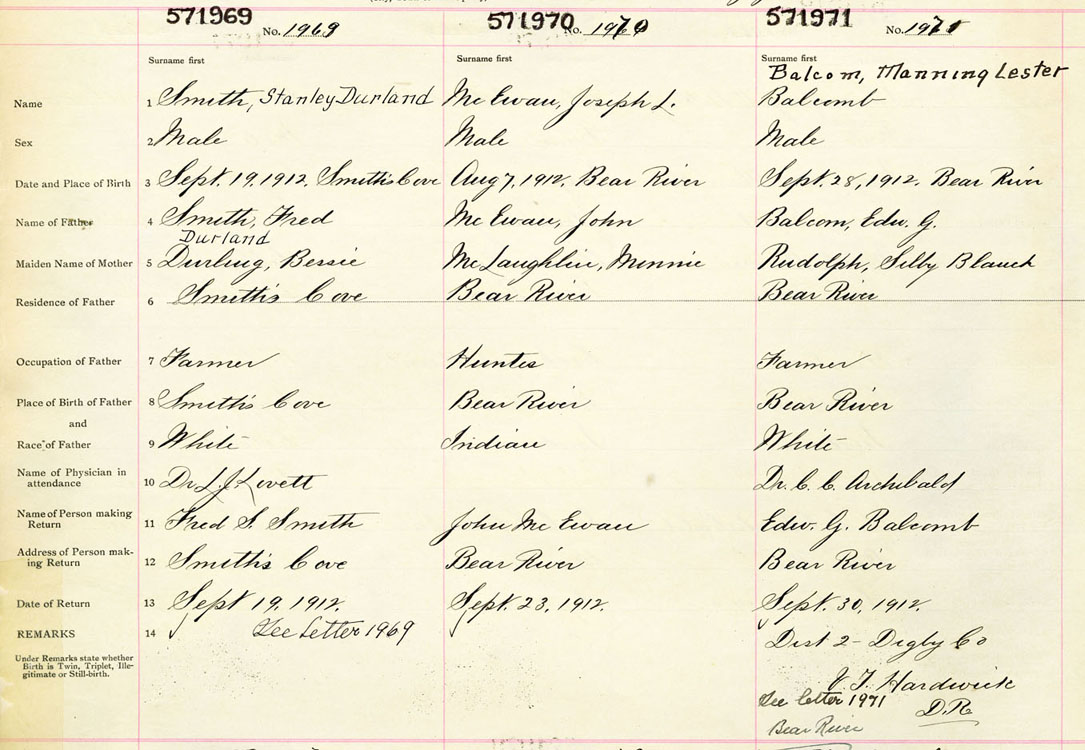 571969 No. 1969 571970 No. 1970 571971 No. 1971
Surname first Surname first Surname first
Balcom, Manning Lester
Name 1 Smith, Stanley Durland Mc Ewan, Joseph L. Balcomb
Sex 2 Male Male Male
Date and Place of Birth 3 Sept. 19, 1912. Smith's Cove Aug 7, 1912. Bear River Sept. 28, 1912. Bear River
Name of Father 4 Smith, Fred Mc Ewan, John Balcom, Edw. G.
Durland
Maiden Name of Mother 5 Durling, Bessie McLaughlin, Minnie Rudolph, Selby Blanch
Residence of Father 6 Smith's Cove Bear River Bear River
Occupation of Father 7 Farmer Hunter Farmer
Place of Birth of Father 8 Smith's Cove Bear River Bear River
and
Race of Father 9 White Indian White
Name of Physician in
attendance 10 Dr L. J. Lovett Dr. C. C. Archibald
Name of Person making
Return 11 Fred S Smith John Mc Ewan Edw. G. Balcomb
Address of Person mak-
ing Return 12 Smith's Cove Bear River Bear River
Date of Return 13 Sept 19, 1912. Sept. 23, 1912. Sept. 30, 1912.
REMARKS 14 See Letter 1969 Dist 2 - Digby Co
Under Remarks state whether
Birth is Twin, Triplet, Ille-
gitimate or Still-birth.
J. T. Hardwick
See letter 1971 D.R.
Bear River